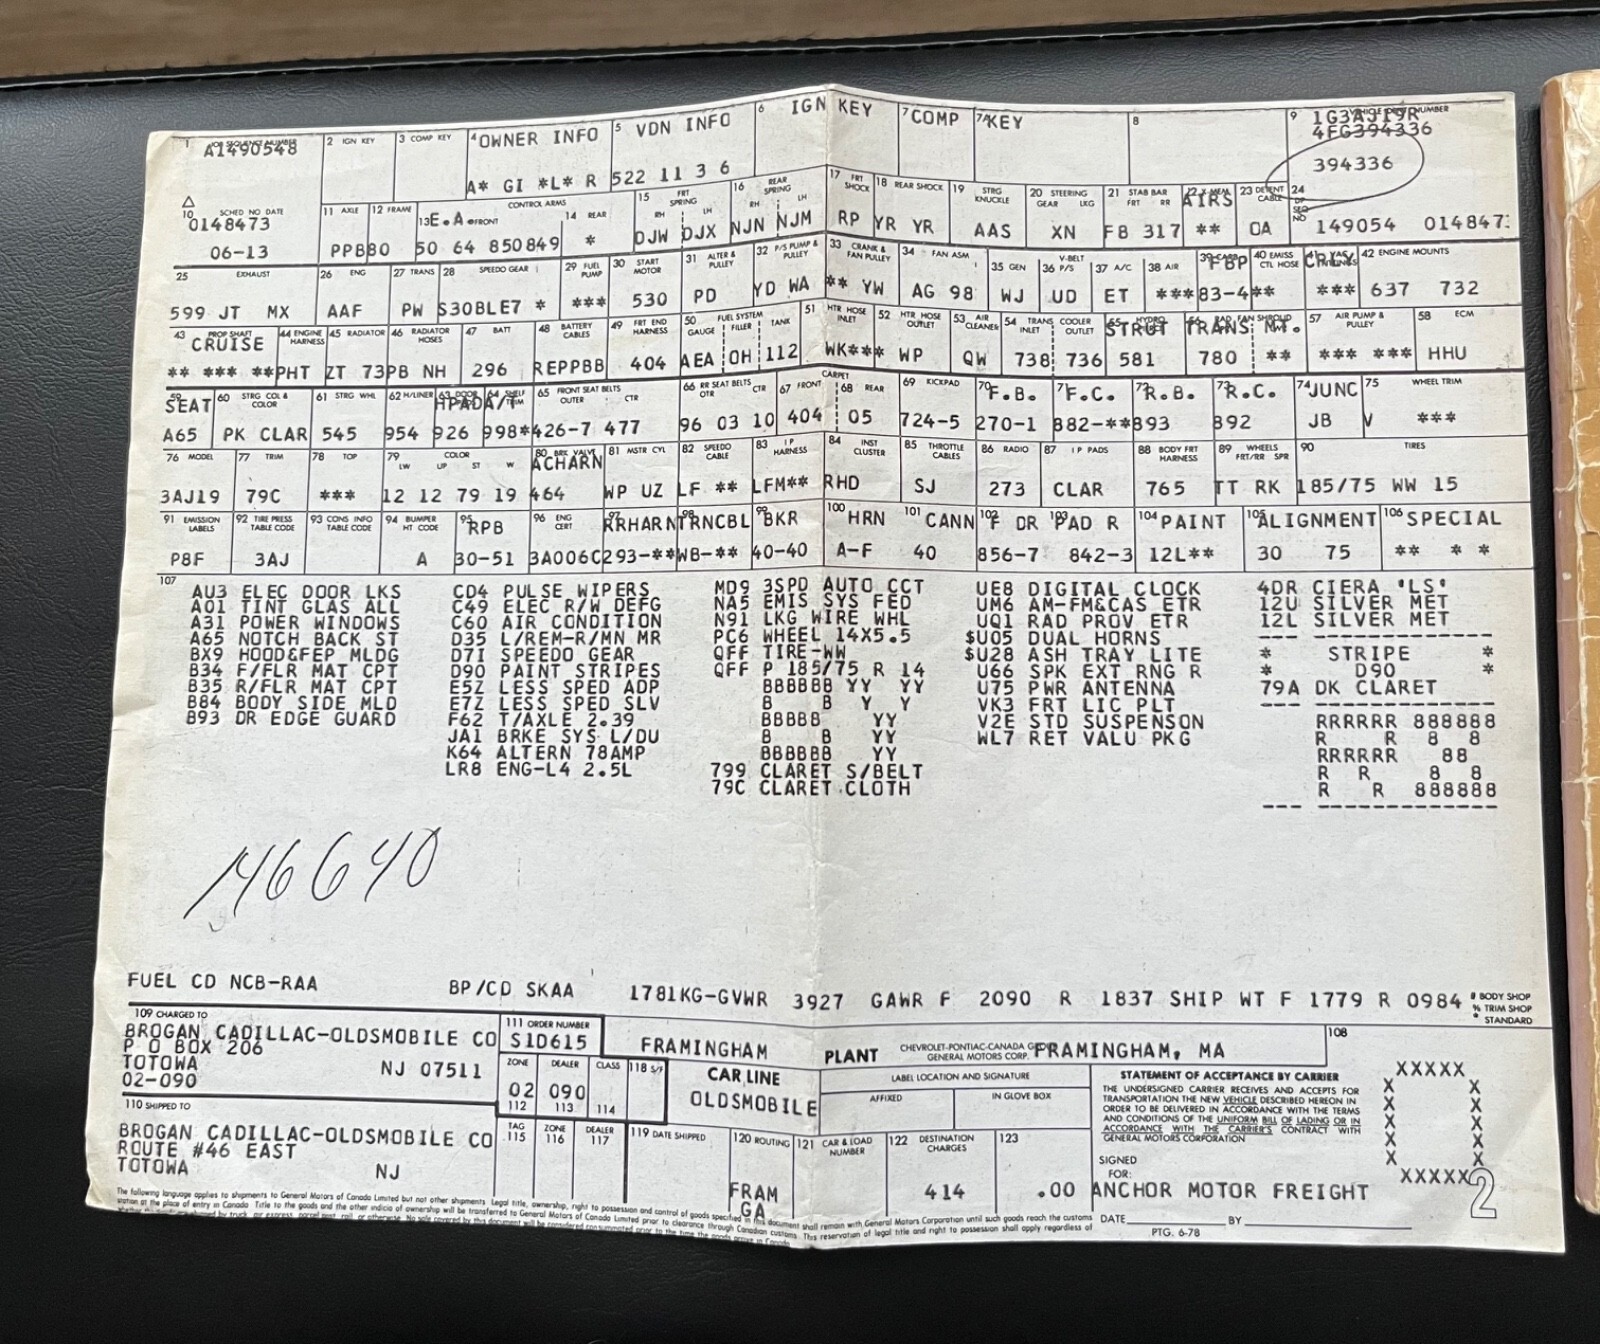 1 JOB SEQUENCE NUMBER A1490548 2 IGN KEY 3 COMP KEY 4 OWNER INFO A* GI *L* R 5 VDN INFO 522 11 3 6 6 IGN KEY 7 COMP 7A KEY 8 9 VEHICLE IDENT NUMBER 1G3AJ19R
4FG394336
394336
10 SCHED NO DATE 0148473 06-13 11 AXLE PPB 12 FRAME BO 13 E.A. FRONT CONTROL ARMS 50 64 850849 14 REAR * 15 FRT SPRING RH LH DJW DJX 16 REAR SPRING RH LH NJN NJM 17 FRT SHOCK RP 18 REAR SHOCK YR YR 19 STRG KNUCKLE AAS 20 STEERING GEAR LKG XN 21 STAB BAR FRT RR FB 317 22 AIRS ** 23 DETENT CABLE OA 24 SEQ NO 149054 014847
25 EXHAUST 599 JT MX 26 ENG AAF 27 TRANS PW 28 SPEEDO GEAR S30BLE7 * 29 FUEL PUMP *** 30 START MOTOR 530 31 ALTER & PULLEY PD 32 P/S PUMP & PULLEY YD WA 33 CRANK & FAN PULLEY ** YW 34 FAN ASM AG 98 35 GEN WJ V-BELT 36 P/S UD 37 A/C ET 38 AIR *** 39 FBP 83-4 40 EMISS CTL HOSE ** 41 *** 42 ENGINE MOUNTS 637 732
43 PROP SHAFT CRUISE ** *** ** 44 ENGINE HARNESS PHT 45 RADIATOR ZT 73 46 RADIATOR HOSES PB NH 47 BATT 296 48 BATTERY CABLES REPPBB 49 FRT END HARNESS 404 50 FUEL SYSTEM GAUGE FILLER TANK AEA OH 112 51 HTR HOSE INLET WK*** 52 HTR HOSE OUTLET WP 53 AIR CLEANER QW 54 TRANS INLET COOLER OUTLET 738 736 55 STRUT 581 56 RAD FAN SHROUD TRANS. MT. 780 ** 57 AIR PUMP & PULLEY *** *** 58 ECM HHU
59 SEAT A65 60 STRG COL & COLOR PK CLAR 61 STRG WHL 545 62 H/LINER 954 63 HPADA/ 926 64 SHELF TRIM 998* 65 FRONT SEAT BELTS OUTER CTR 426-7 477 66 RR SEAT BELTS OTR CTR 96 03 10 CARPET 67 FRONT 404 68 REAR 05 69 KICKPAD 724-5 70 F.B. 270-1 71 F.C. B82-** 72 R.B. B93 73 R.C. B92 74 JUNC JB 75 WHEEL TRIM V ***
76 MODEL 3AJ19 77 TRIM 79C 78 TOP *** 79 COLOR LW UP ST W 12 12 79 19 80 BRK VALVE ACHARN 464 81 MSTR CYL WP UZ 82 SPEEDO CABLE LF ** 83 I P HARNESS LFM** 84 INST CLUSTER RHD 85 THROTTLE CABLES SJ 86 RADIO 273 87 I P PADS CLAR 88 BODY FRT HARNESS 765 89 WHEELS FRT/RR SPR TT RK 90 TIRES 185/75 WW 15
91 EMISSION LABELS P8F 92 TIRE PRESS TABLE CODE 3AJ 93 CONS INFO TABLE CODE 94 BUMPER HT CODE A 95 RPB 30-51 96 ENG CERT 3A006C 97 RRHARN 293-** 98 TRNCBL WB-** 99 BKR 40-40 100 HRN A-F 101 CANN 40 102 F DR 856-7 103 PAD R 842-3 104 PAINT 12L** 105 ALIGNMENT 30 75 106 SPECIAL ** * *
107
AU3 ELEC DOOR LKS
A01 TINT GLAS ALL
A31 POWER WINDOWS
A65 NOTCH BACK ST
BX9 HOOD&FEP MLDG
B34 F/FLR MAT CPT
B35 R/FLR MAT CPT
B84 BODY SIDE MLD
B93 DR EDGE GUARD
CD4 PULSE WIPERS
C49 ELEC R/W DEFG
C60 AIR CONDITION
D35 L/REM-R/MN MR
D7I SPEEDO GEAR
D90 PAINT STRIPES
E5Z LESS SPED ADP
E7Z LESS SPED SLV
F62 T/AXLE 2.39
JA1 BRKE SYS L/DU
K64 ALTERN 78AMP
LR8 ENG-L4 2.5L
MD9 3SPD AUTO CCT
NA5 EMIS SYS FED
N91 LKG WIRE WHL
PC6 WHEEL 14X5.5
QFF TIRE-WW
QFF P 185/75 R 14
BBBBBB YY YY
B B Y Y
BBBBB YY
B B YY
BBBBBB YY
799 CLARET S/BELT
79C CLARET CLOTH
UE8 DIGITAL CLOCK
UM6 AM-FM&CAS ETR
UQ1 RAD PROV ETR
$U05 DUAL HORNS
$U28 ASH TRAY LITE
U66 SPK EXT RNG R
U75 PWR ANTENNA
VK3 FRT LIC PLT
V2E STD SUSPENSON
WL7 RET VALU PKG
4DR CIERA 'LS'
12U SILVER MET
12L SILVER MET
--- --------------
* STRIPE *
* D90 *
79A DK CLARET
--- --------------
RRRRRR 888888
R R 8 8
RRRRRR 88
R R 8 8
R R 888888
--- --------------
146640
FUEL CD NCB-RAA BP/CD SKAA 1781KG-GVWR 3927 GAWR F 2090 R 1837 SHIP WT F 1779 R 0984
# BODY SHOP
% TRIM SHOP
* STANDARD
109 CHARGED TO
BROGAN CADILLAC-OLDSMOBILE CO
P O BOX 206
TOTOWA NJ 07511
02-090
110 SHIPPED TO
BROGAN CADILLAC-OLDSMOBILE CO
ROUTE #46 EAST
TOTOWA NJ
111 ORDER NUMBER
S1D615
ZONE DEALER CLASS 118 S/F
02 090
112 113 114
TAG 115 ZONE 116 DEALER 117 119 DATE SHIPPED
FRAMINGHAM PLANT CHEVROLET-PONTIAC-CANADA GROUP
GENERAL MOTORS CORP. FRAMINGHAM, MA
108
CAR LINE
OLDSMOBILE
LABEL LOCATION AND SIGNATURE
AFFIXED IN GLOVE BOX
120 ROUTING FRAM GA
121 CAR & LOAD NUMBER
122 DESTINATION CHARGES 414
123 .00
STATEMENT OF ACCEPTANCE BY CARRIER
THE UNDERSIGNED CARRIER RECEIVES AND ACCEPTS FOR
TRANSPORTATION THE NEW VEHICLE DESCRIBED HEREON IN
ORDER TO BE DELIVERED IN ACCORDANCE WITH THE TERMS
AND CONDITIONS OF THE UNIFORM BILL OF LADING OR IN
ACCORDANCE WITH THE CARRIER'S CONTRACT WITH
GENERAL MOTORS CORPORATION
SIGNED
FOR:
ANCHOR MOTOR FREIGHT
DATE BY
PTG. 6-78
XXXXX
X X
X X
X X
X X
X X
XXXXX
2
The following language applies to shipments to General Motors of Canada Limited but not other shipments. Legal title, ownership, right to possession and control of goods specified in this document shall remain with General Motors Corporation until such goods reach the customs
station at the place of entry in Canada. Title to the goods and the other indicia of ownership will be transferred to General Motors of Canada Limited prior to clearance through Canadian customs. This reservation of legal title and right to possession shall apply regardless of